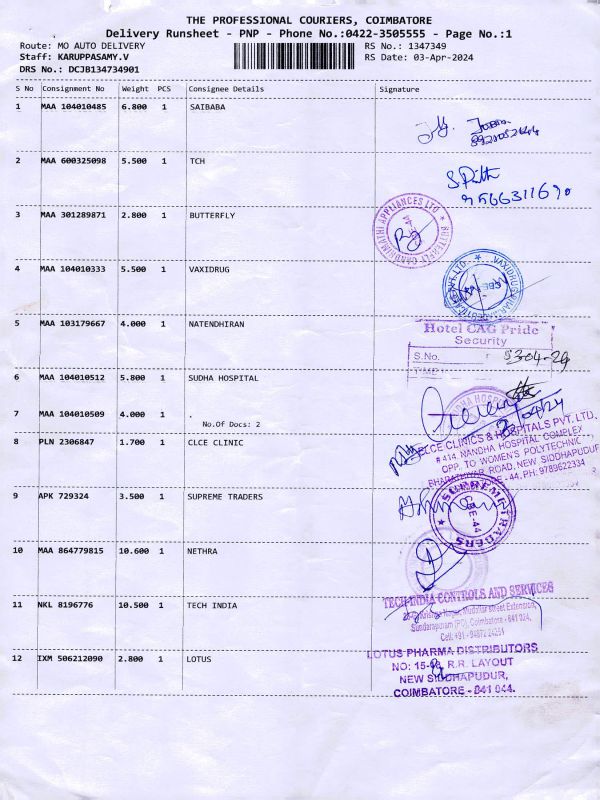 THE PROFESSIONAL COURIERS, COIMBATORE
Delivery Runsheet - PNP - Phone No.:0422-3505555 - Page No.:1
Route: MO AUTO DELIVERY RS No.: 1347349
Staff: KARUPPASAMY.V RS Date: 03-Apr-2024
DRS No.: DCJB134734901
S No Consignment No Weight PCS Consignee Details Signature
1 MAA 104010485 6.800 1 SAIBABA
2 MAA 600325098 5.500 1 TCH
9566311690
3 MAA 301289871 2.800 1 BUTTERFLY
GANDHIMATHI APPLIANCES LTD * BUTTERFLY *
4 MAA 104010333 5.500 1 VAXIDRUG
5 MAA 103179667 4.000 1 NATENDHIRAN
Hotel CAG Pride
Security
S.No.
TIME
6 MAA 104010512 5.800 1 SUDHA HOSPITAL
7 MAA 104010509 4.000 1 .
No.Of Docs: 2
8 PLN 2306847 1.700 1 CLCE CLINIC
CLCE CLINICS & HOSPITALS PVT. LTD.
# 414, NANDHA HOSPITAL COMPLEX
OPP. TO WOMEN'S POLYTECHNIC,
BHARATHIYAR ROAD, NEW SIDDHAPUDUR
CBE - 44. PH: 9789622334
9 APK 729324 3.500 1 SUPREME TRADERS
SUPREME TRADERS
CBE-44
10 MAA 864779815 10.600 1 NETHRA
11 NKL 8196776 10.500 1 TECH INDIA
TECH INDIA CONTROLS AND SERVICES
Street Extension,
Sundarapuram (PO), Coimbatore - 641 024.
12 IXM 506212090 2.800 1 LOTUS
LOTUS PHARMA DISTRIBUTORS
R.R. LAYOUT
NEW SIDDHAPUDUR,
COIMBATORE - 641 044.